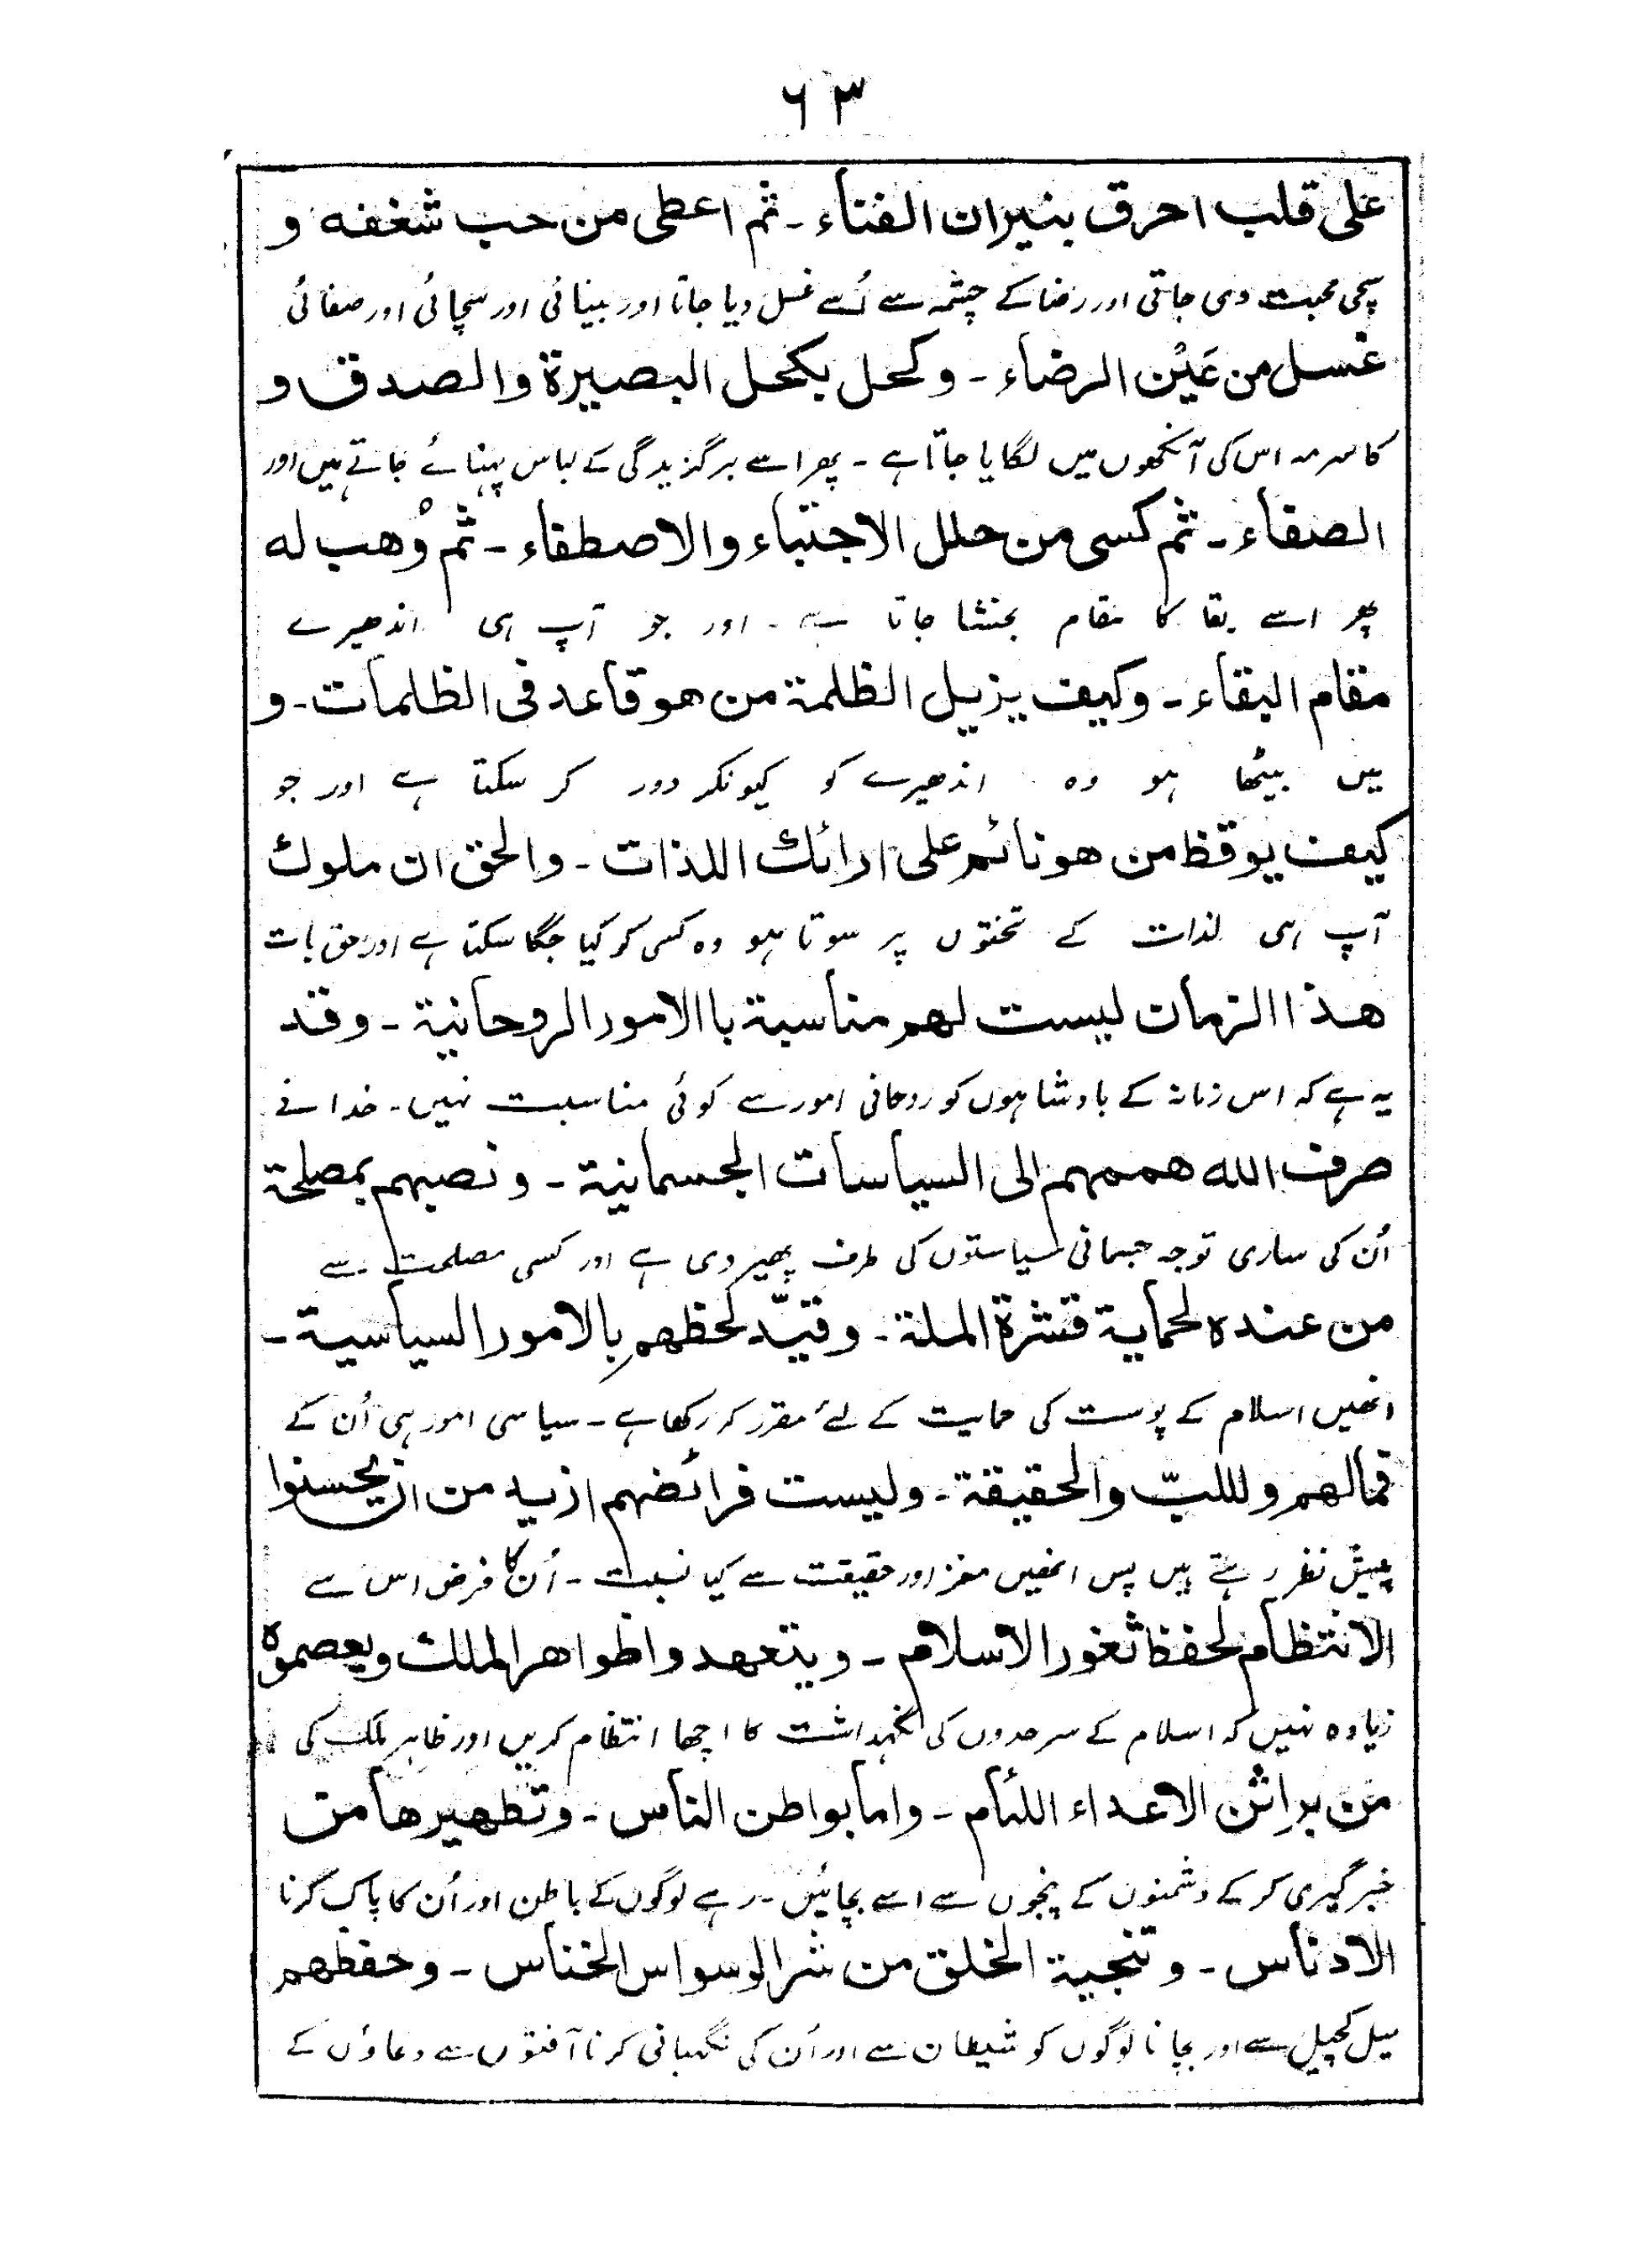 ٦٣
على قلب احرق بنيران الفناء ـ ثم اعطى من حب شغفه و
سچی محبت دی جاتی اور رضا کے چشمہ سے اُسے غسل دیا جاتا اور بینائی اور سچائی اور صفائی
غسل من عَيْن الرضاء ـ وكحل بكحل البصيرة والصدق و
کا سرمہ اس کی آنکھوں میں لگایا جاتا ہے ۔ پھر اسے برگزیدگی کے لباس پہنائے جاتے ہیں اور
الصفاء ـ ثم كسى من حلل الاجتباء والاصطفاء ـ ثم وُهب له
پھر اسے بقا کا مقام بخشا جاتا ہے ۔ اور جو آپ ہی اندھیرے
مقام البقاء ـ وكيف يزيل الظلمة من هو قاعد فى الظلمات ـ و
میں بیٹھا ہو وہ اندھیرے کو کیونکر دور کر سکتا ہے اور جو
كيف يوقظ من هو نائم على ارائك اللذات ـ والحق ان ملوك
آپ ہی لذات کے تختوں پر سوتا ہو وہ کسی کو کیا جگا سکتا ہے اور حق بات
هذا الزمان ليست لهم مناسبة باالامور الروحانية ـ وقد
یہ ہے کہ اس زمانہ کے بادشاہوں کو روحانی امور سے کوئی مناسبت نہیں ۔ خدا نے
صرف الله هممهم الى السياسات الجسمانية ـ ونصبهم بمصلحة
اُن کی ساری توجہ جسمانی سیاستوں کی طرف پھیر دی ہے اور کسی مصلحت سے
من عنده لحماية قشرة الملة ـ وقيّد لحظهم بالامور السياسية ـ
انھیں اسلام کے پوست کی حمایت کے لئے مقرر کر رکھا ہے ۔ سیاسی امور ہی اُن کے
فمالهم وللبّ والحقيقة ـ وليست فرائضهم ازيد من ان يحسنوا
پیش نظر رہتے ہیں پس انھیں مغز اور حقیقت سے کیا نسبت ۔ اُن کا فرض اس سے
الانتظام لحفظ ثغور الاسلام ـ ويتعهدوا ظواهر الملك ويعصموه
زیادہ نہیں کہ اسلام کے سرحدوں کی نگہداشت کا اچھا انتظام کریں اور ظاہر ملک کی
من براثن الاعداء اللئام ـ واما بواطن الناس ـ وتطهيرها من
خبر گیری کر کے دشمنوں کے پنجوں سے اسے بچائیں ۔ رہے لوگوں کے باطن اور اُن کا پاک کرنا
الادناس ـ وتنجية الخلق من شر الوسواس الخناس ـ وحفظهم
میل کچیل سے اور بچانا لوگوں کو شیطان سے اور اُن کی نگہبانی کرنا آفتوں سے دعاؤں کے